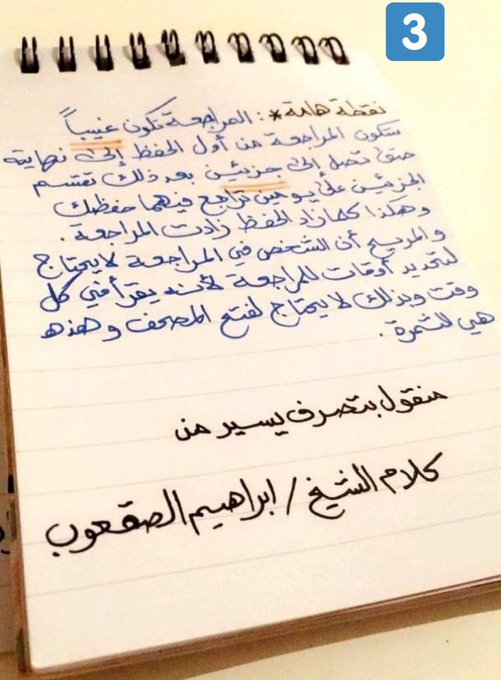 3
نقطة هامة* : المراجعة تكون غيباً
ستكون المراجعة من أول الحفظ إلى نهايته
حتى تصل إلى جزئين بعد ذلك تقسم
الجزئين على يومين تراجع فيهما حفظك
وهكذا كلما زاد الحفظ زادت المراجعة .
والمريح أن الشخص في المراجعة لا يحتاج
لتحديد أوقات للمراجعة لأنه يقرأ في كل
وقت وبذلك لا يحتاج لفتح المصحف وهذه
هي الثمرة .
منقول بتصرف يسير من
كلام الشيخ / ابراهيم الصقعوب